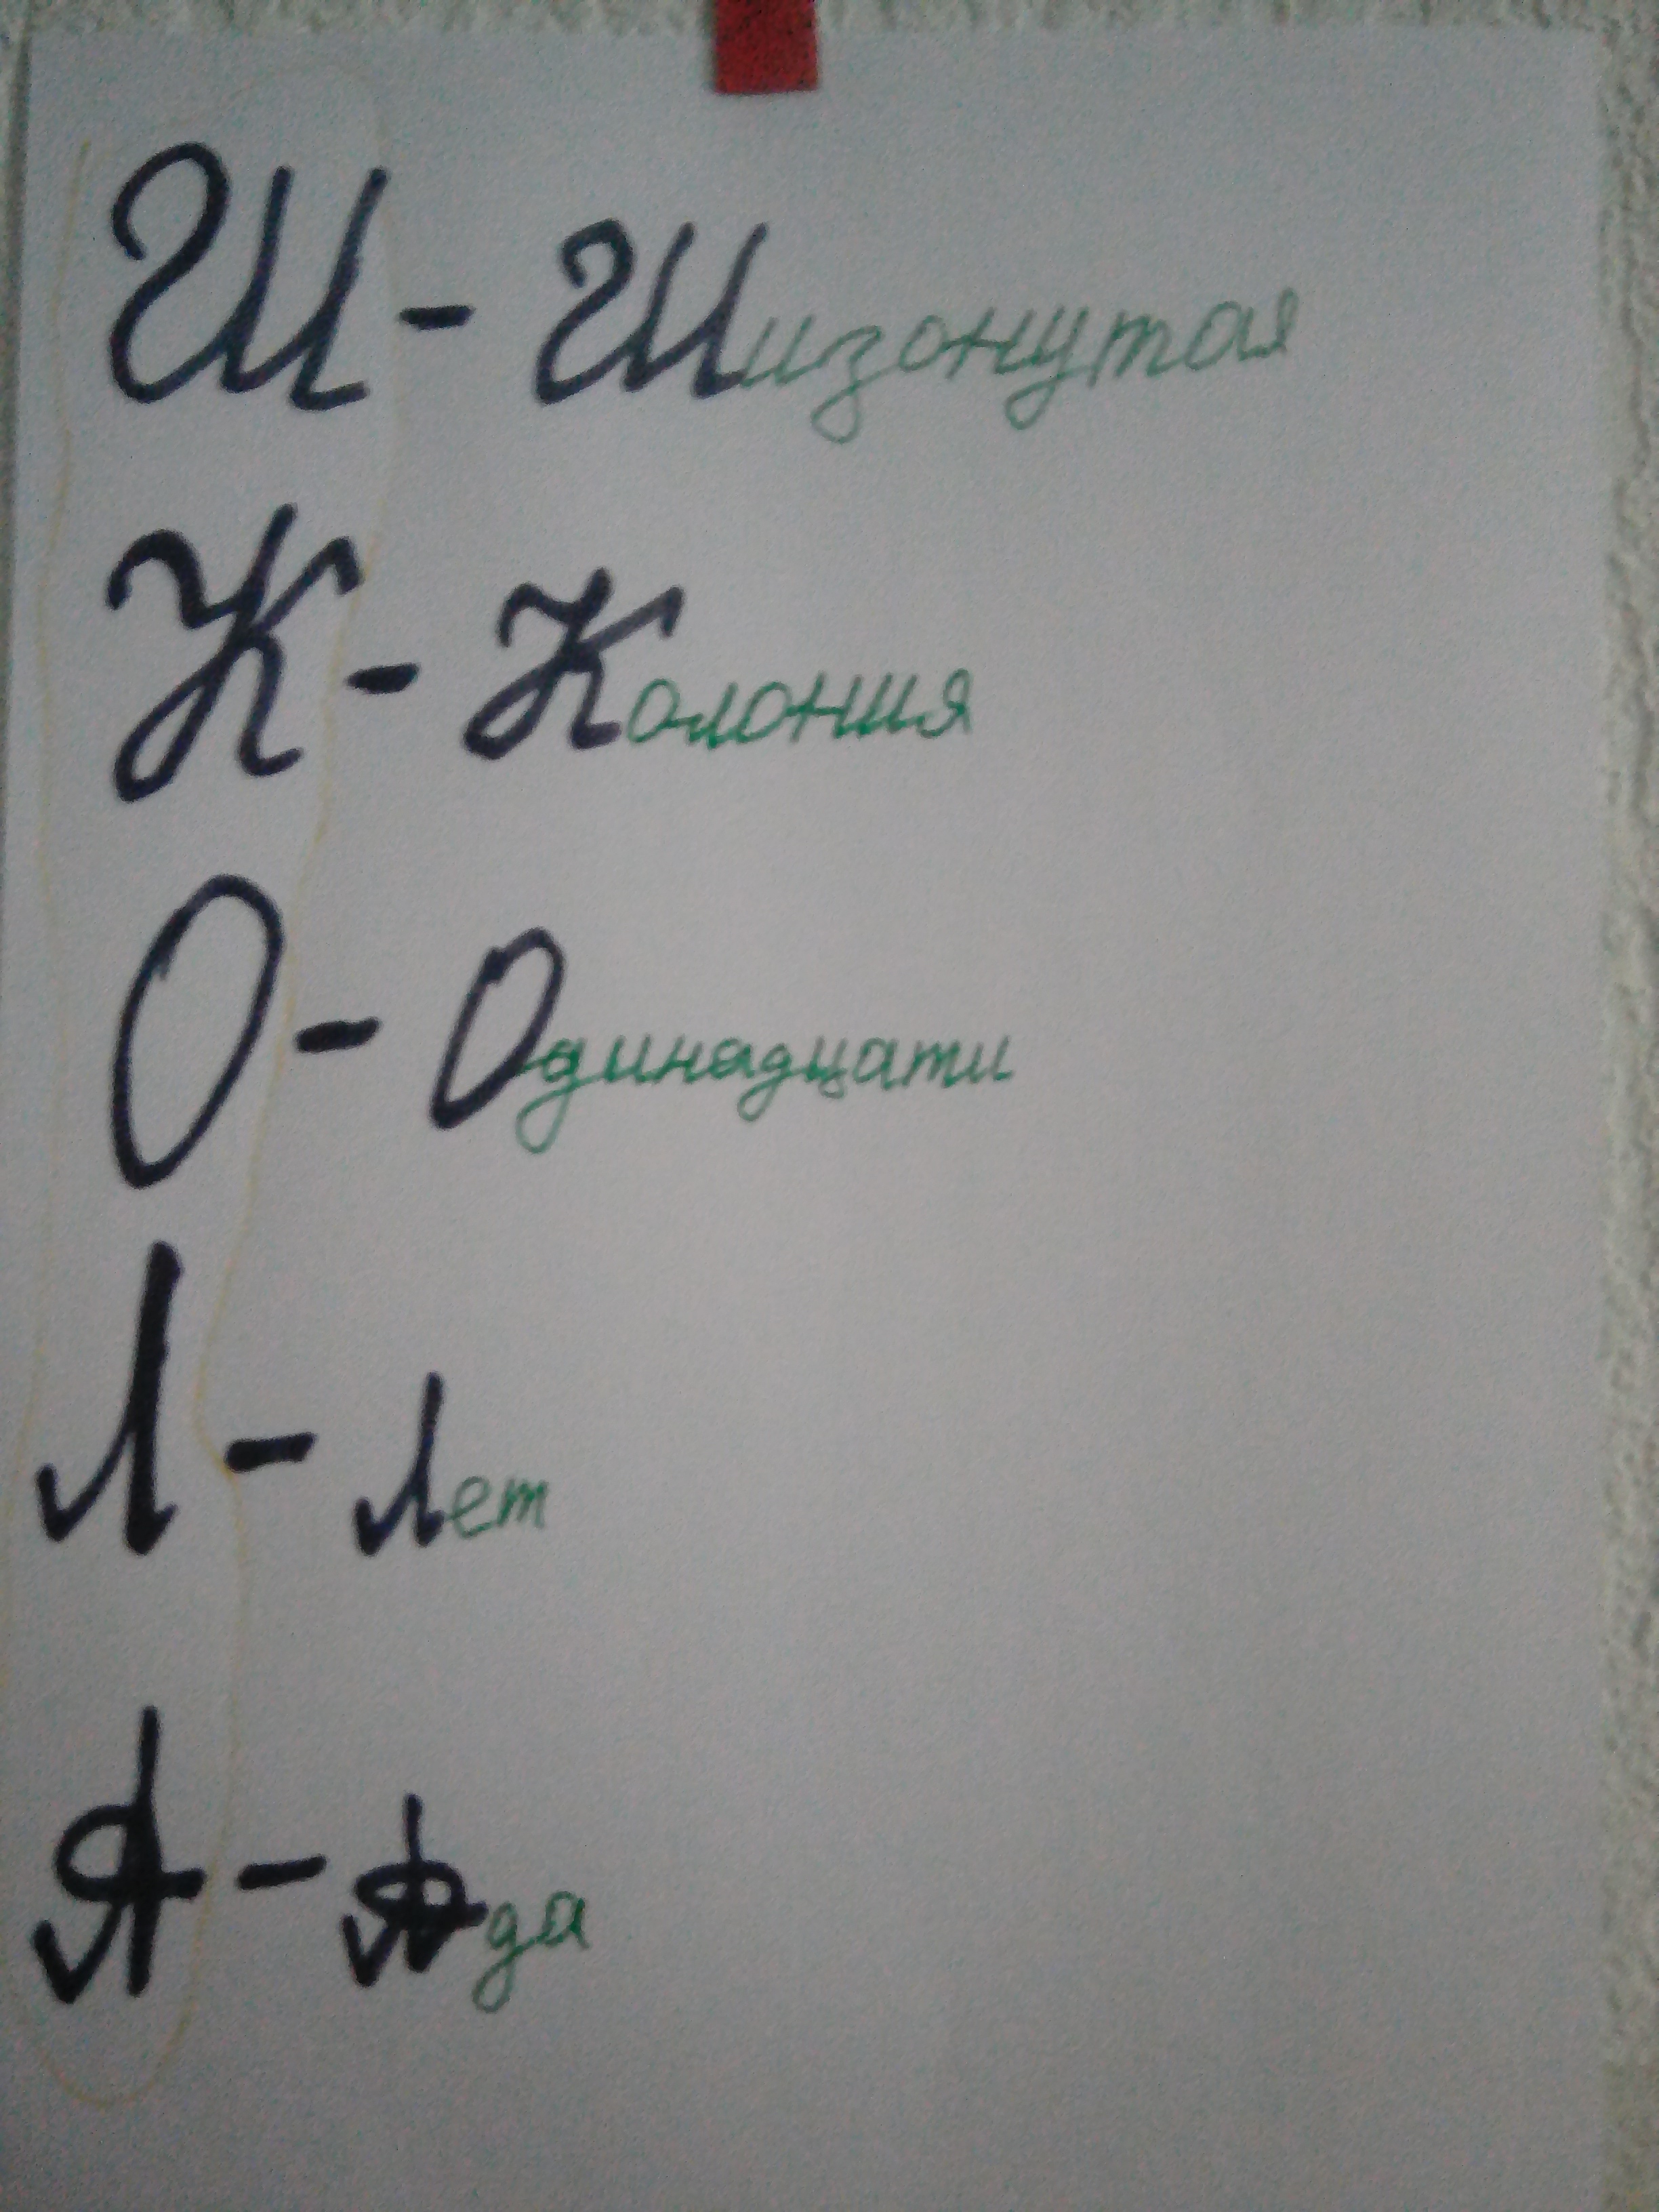 Ш - Шизонутая
К - Колония
О - Одинадцати
Л - Лет
Я - Яда